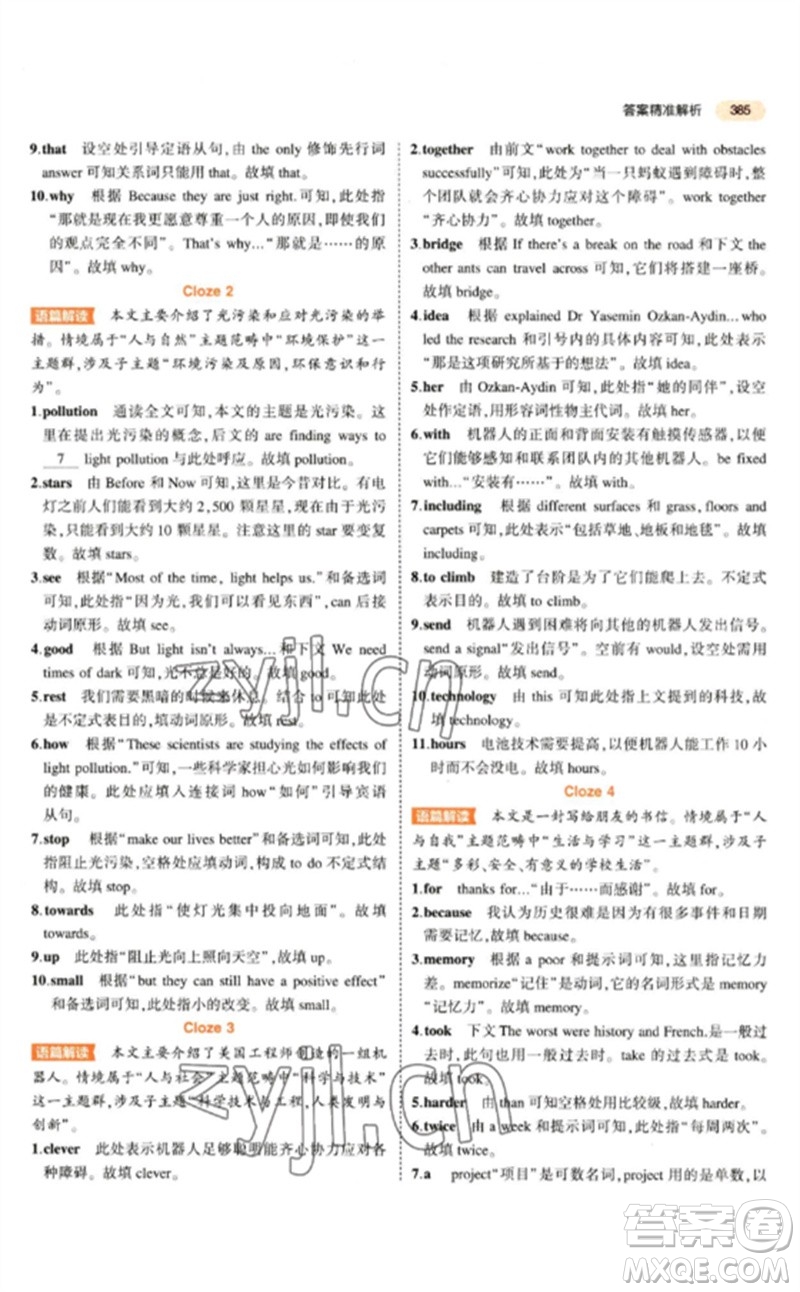 答案精准解析 385
9.that 设空处引导定语从句，由 the only 修饰先行词
answer 可知关系词只能用 that。故填 that。
10.why 根据 Because they are just right.可知，此处指
“那就是现在我更愿意尊重一个人的原因，即使我们
的观点完全不同”。That's why…“那就是……的原
因”。故填 why。
Cloze 2
语篇解读 本文主要介绍了光污染和应对光污染的举
措。情境属于“人与自然”主题范畴中“环境保护”这一
主题群，涉及子主题“环境污染及原因，环保意识和行
为”。
1.pollution 通读全文可知，本文的主题是光污染。这
里在提出光污染的概念，后文的 are finding ways to
7 light pollution 与此处呼应。故填 pollution。
2.stars 由 Before 和 Now 可知，这里是今昔对比。有电
灯之前人们能看到大约 2,500 颗星星，现在由于光污
染，只能看到大约 10 颗星星。注意这里的 star 要变复
数。故填 stars。
3.see 根据“Most of the time, light helps us.”和备选词
可知，此处指“因为光，我们可以看见东西”，can 后接
动词原形。故填 see。
4.good 根据 But light isn't always… 和下文 We need
times of dark 可知，光不总是好的。故填 good。
5.rest 我们需要黑暗的时候来休息。结合 to 可知，此处
是不定式表目的，填动词原形。故填 rest。
6.how 根据“These scientists are studying the effects of
light pollution.”可知，一些科学家担心光如何影响我们
的健康。此处应填入连接词 how“如何”引导宾语
从句。
7.stop 根据“make our lives better”和备选词可知，此
处指阻止光污染，空格处应填动词，构成 to do 不定式结
构。故填 stop。
8.towards 此处指“使灯光集中投向地面”。故填
towards。
9.up 此处指“阻止光向上照向天空”，故填 up。
10.small 根据“but they can still have a positive effect”
和备选词可知，此处指小的改变。故填 small。
Cloze 3
语篇解读 本文主要介绍了美国工程师制造的一组机
器人。情境属于“人与社会”主题范畴中“科学与技术”
这一主题群，涉及子主题“科学技术与工程，人类发明与
创新”。
1.clever 此处表示机器人足够聪明能齐心协力应对各
种障碍。故填 clever。
2.together 由前文“work together to deal with obstacles
successfully”可知，此处为“当一只蚂蚁遇到障碍时，整
个团队就会齐心协力应对这个障碍”。work together
“齐心协力”。故填 together。
3.bridge 根据 If there's a break on the road 和下文 the
the other ants can travel across 可知，它们将建造一座桥。
故填 bridge。
4.idea 根据 explained Dr Yasemin Ozkan-Aydin…who
led the research 和引号内的具体内容可知，此处表示
“那是这项研究所基于的想法”。故填 idea。
5.her 由 Ozkan-Aydin 可知，此处指“她的同伴”，设空
处作定语，用形容词性物主代词。故填 her。
6.with 机器人的正面和背面安装有触摸传感器，以便
它们能够感知和联系团队内的其他机器人。be fixed
with…“安装有……”。故填 with。
7.including 根据 different surfaces 和 grass, floors and
carpets 可知，此处表示“包括草地、地板和地毯”。故填
including。
8.to climb 建造了台阶是为了它们能爬上去。不定式
表示目的。故填 to climb。
9.send 机器人遇到困难将向其他的机器人发出信号。
send a signal“发出信号”。空前有 would，设空处需用
动词原形。故填 send。
10.technology 由 this 可知此处指上文提到的科技，故
填 technology。
11.hours 电池技术需要提高，以便机器人能工作 10 小
时而不没电。故填 hours。
Cloze 4
语篇解读 本文是一封写给朋友的书信。情境属于“人
与自我”主题范畴中“生活与学习”这一主题群，涉及子
主题“多彩、安全、有意义的学校生活”。
1.for thanks for…“由于……而感谢”。故填 for。
2.because 我认为历史很难是因为有很多事件和日期
需要记忆，故填 because。
3.memory 根据 a poor 和提示词可知，此处指记忆力
差。memorize“记住”是动词，它的名词形式是 memory
“记忆力”。故填 memory。
4.took 下文 The worst were history and French.是一般过
去时，此句也是一般过去时。take 的过去式是 took。
故填 took。
5.harder 由 than 可知空格处用比较级，故填 harder。
6.twice 由 a week 和提示词可知，此处指“每周两次”。
故填 twice。
7.a project“项目”是可数名词，project 用的是单数，以
zyjl.cn
zyjl.cn
答案卷
MXQE.COM